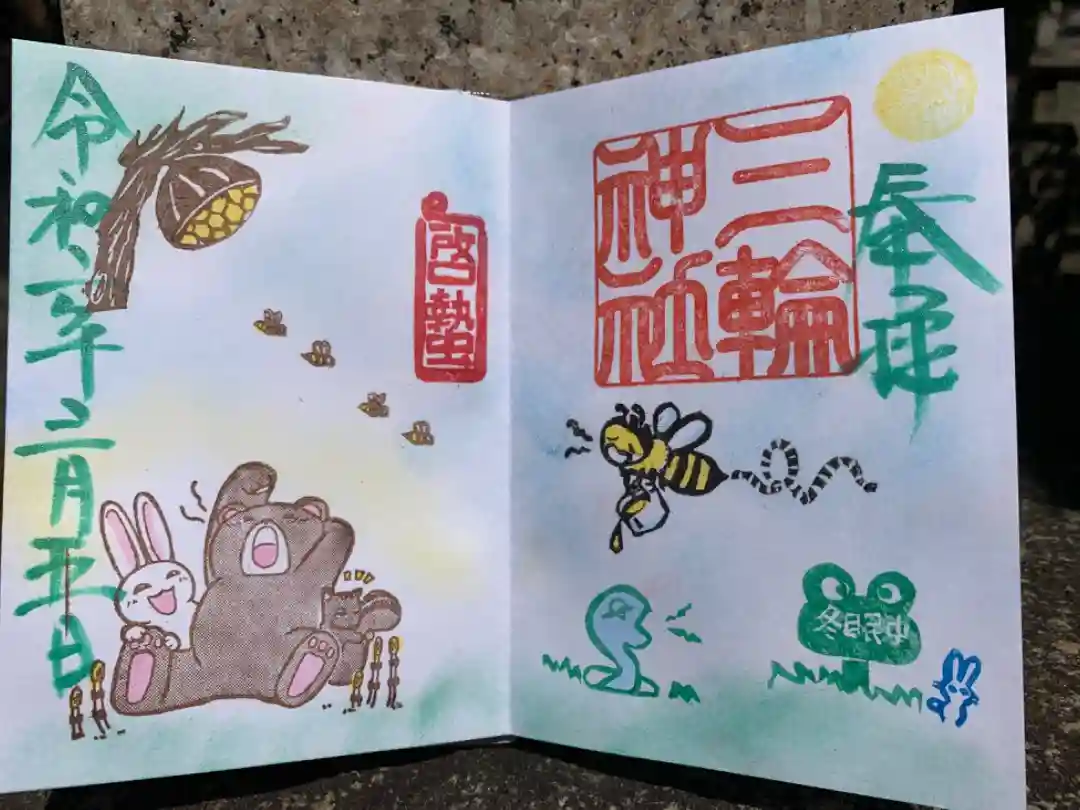 奉拝
三輪
神社
冬眠中
啓蟄
令和二年三月五日